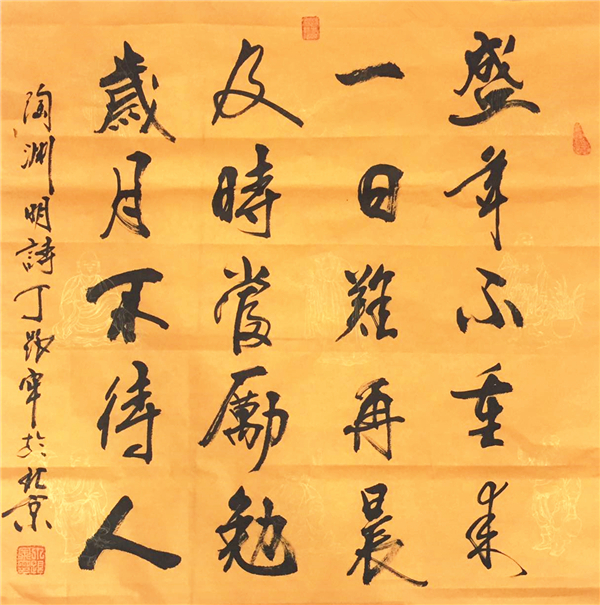 盛年不重來
一日難再晨
及時當勵勉
歲月不待人
陶淵明詩丁於北京